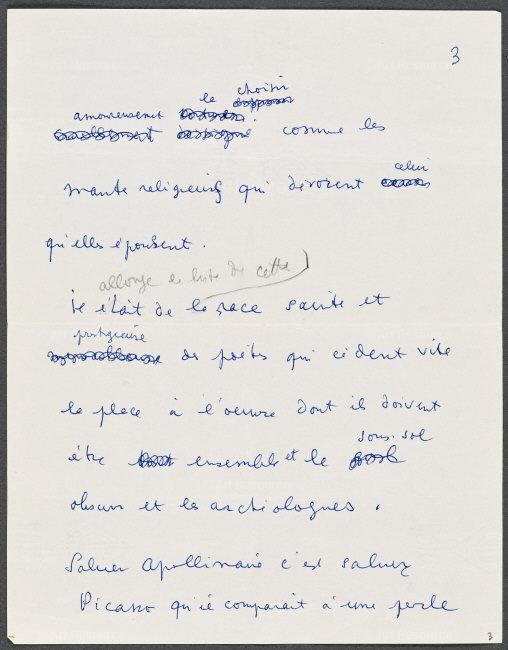 3
le choisir
amoureusement
comme les
mante religieuses qui dévorent celui
qu'elles épousent.
allonge la liste de cette
il était de la race sainte et
prestigieuse
des poètes qui cèdent vite
la place à l'oeuvre dont ils doivent
être ensemble et le sous-sol
obscur et les archéologues.
Saluer Apollinaire c'est saluer
Picasso qu'il comparait à une perle
3